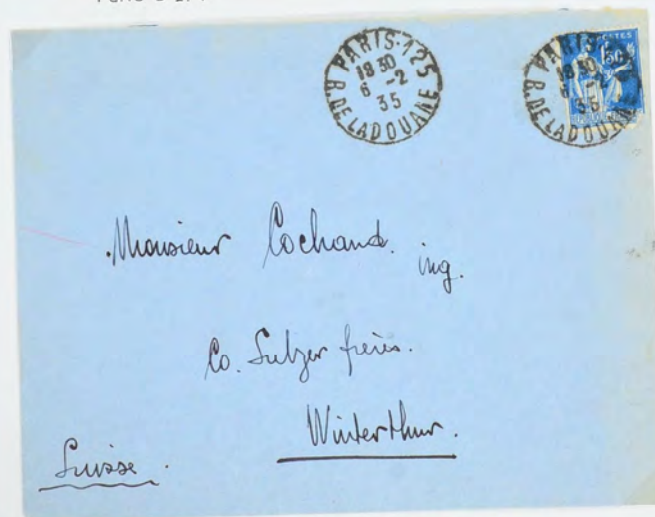 PARIS-125
18 30
6 -2
35
R. DE LA DOUANE
PARIS
18 30
6 -2
35
R. DE LA DOUANE
POSTES
1,50
Monsieur Cochand. ing.
Co. Sulzer frères.
Winterthur.
Suisse.